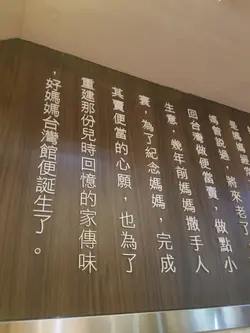 是媽媽最
媽曾說過，將來老了
回台灣做便當賣，做點小
生意，幾年前媽媽撒手人
寰，為了紀念媽媽，完成
其賣便當的心願，也為了
重建那份兒時回憶的家傳味
，好媽媽台灣館便誕生了。